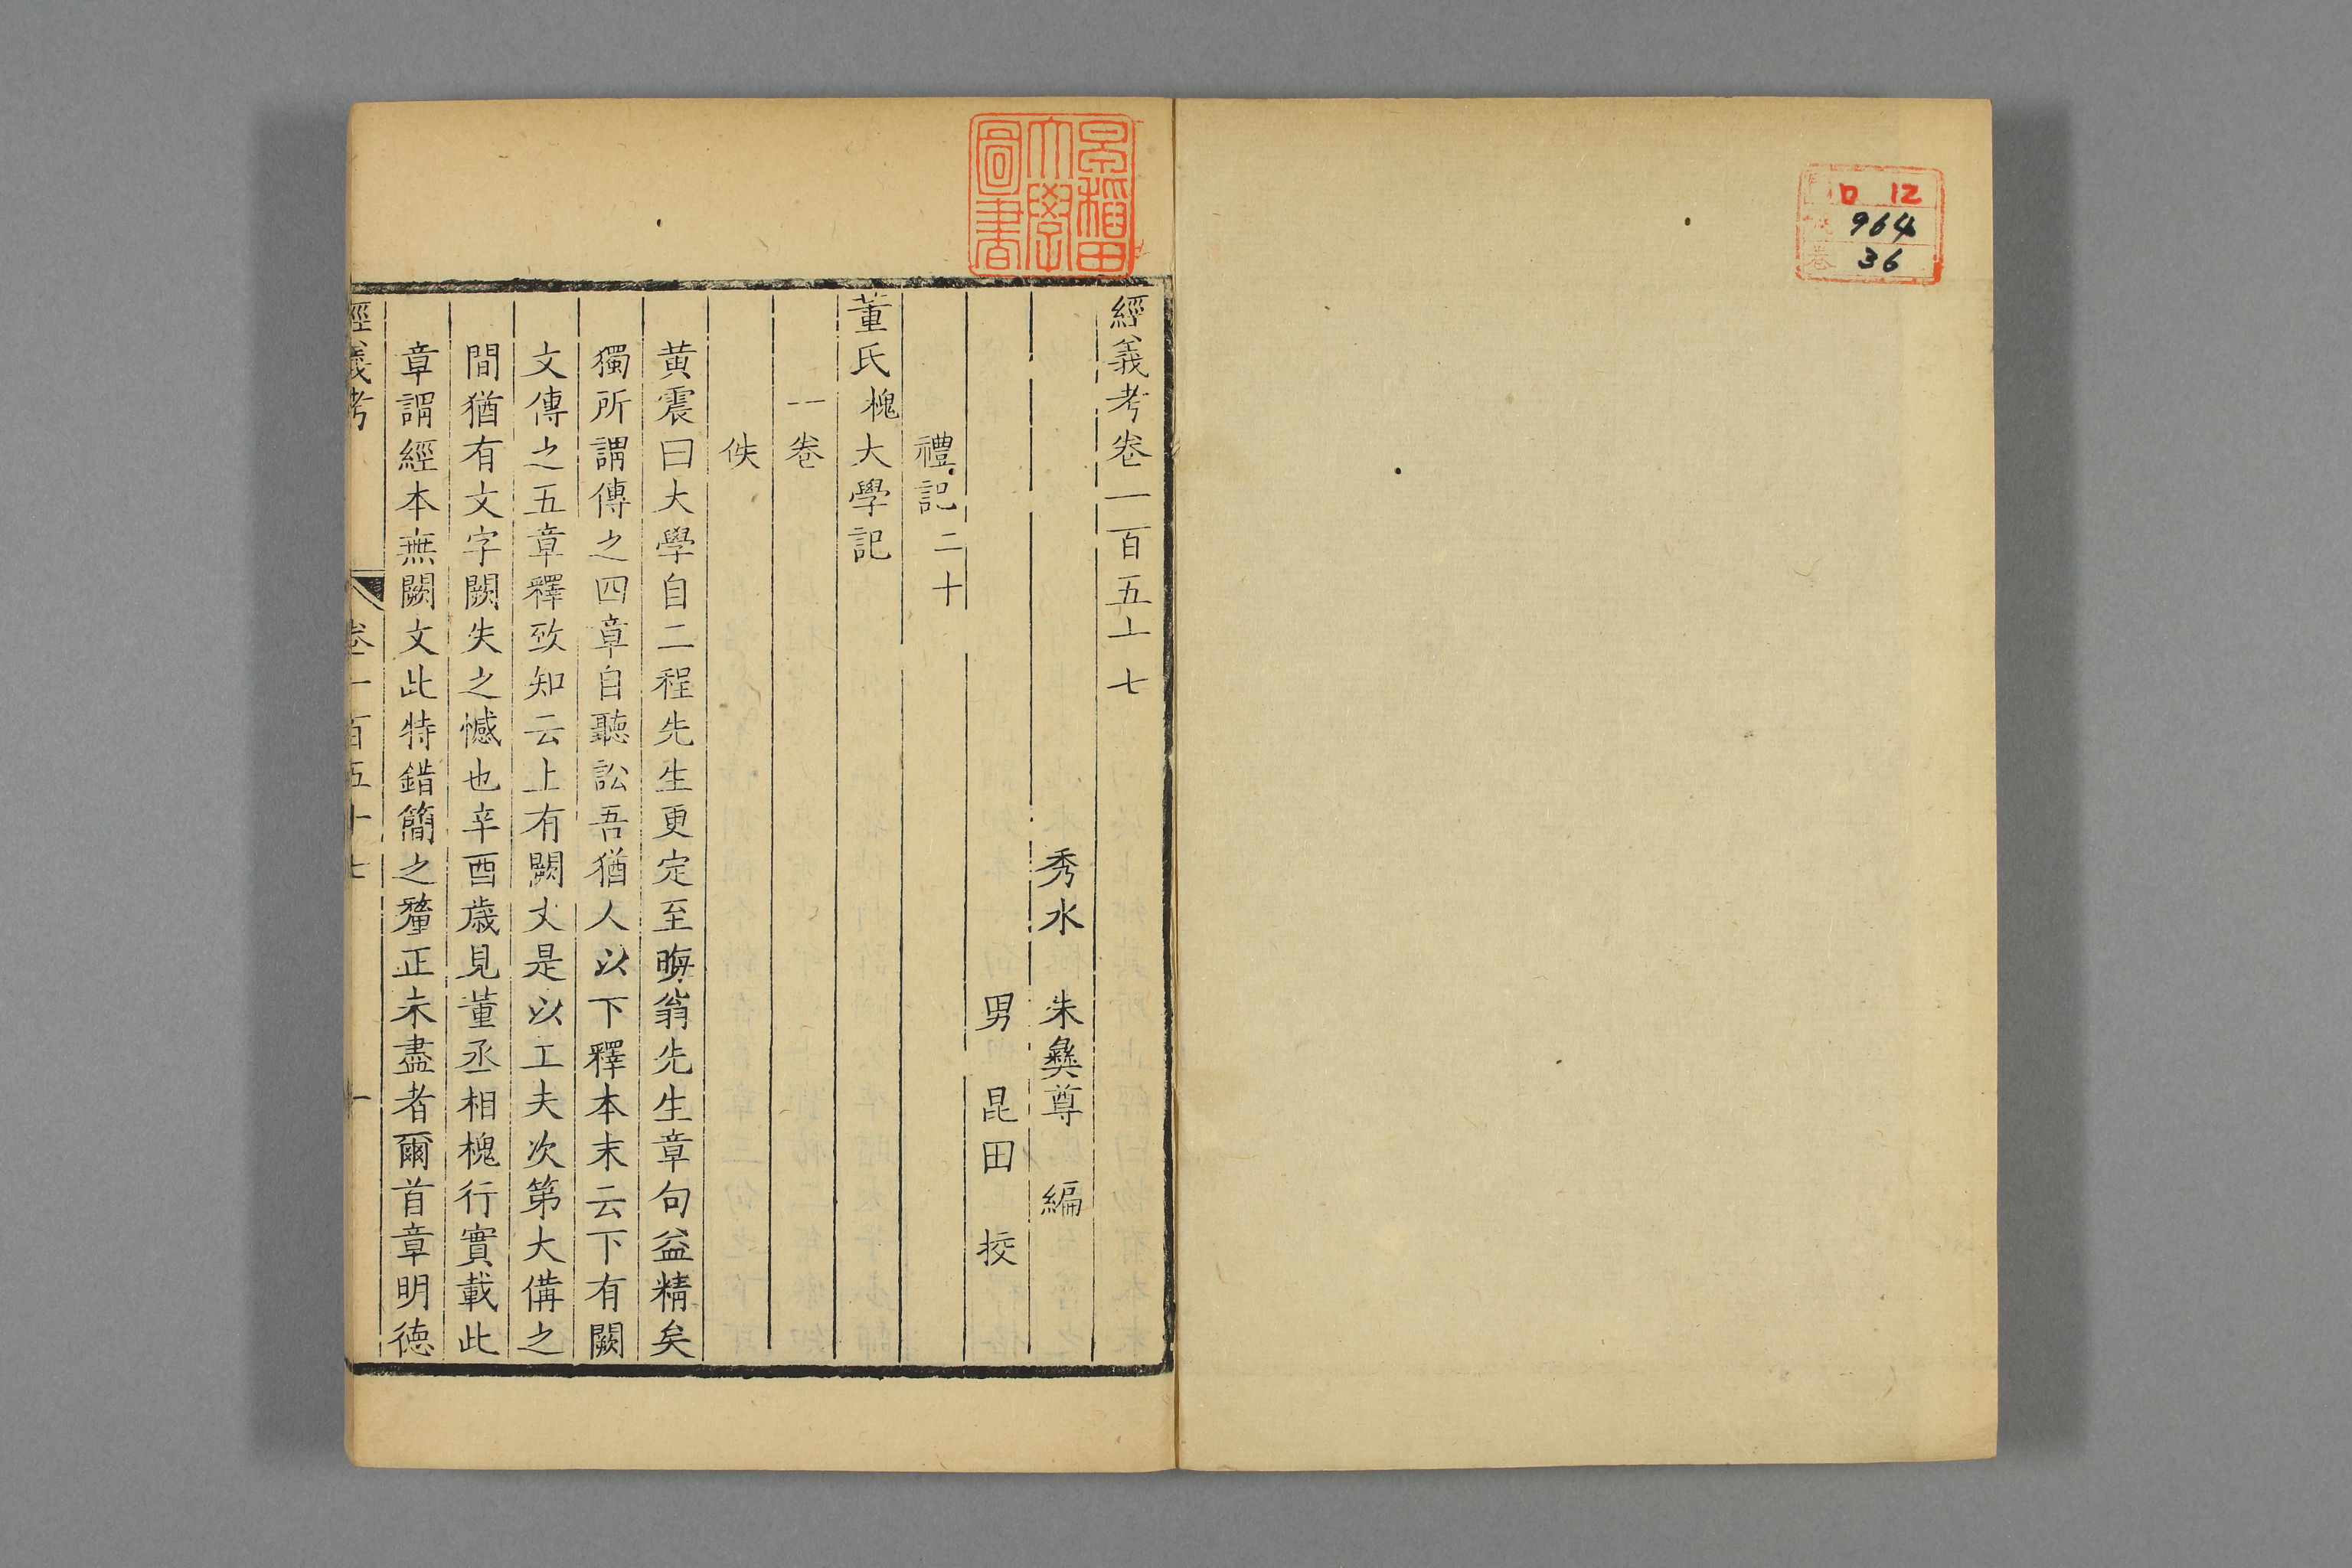 口 12
964
卷 36
早稻田
大學
圖書
經義考卷一百五十七
秀水 朱彝尊 編
男 昆田 挍
禮記二十
董氏槐大學記
一卷
佚
黄震曰大學自二程先生更定至晦翁先生章句益精矣
獨所謂傳之四章自聽訟吾猶人以下釋本末云下有闕
文傳之五章釋致知云上有闕文是以工夫次第大備之
間猶有文字闕失之憾也辛酉歲見董丞相槐行實載此
章謂經本無闕文此特錯簡之釐正未盡者爾首章明德
經義考 卷一百五十七 一